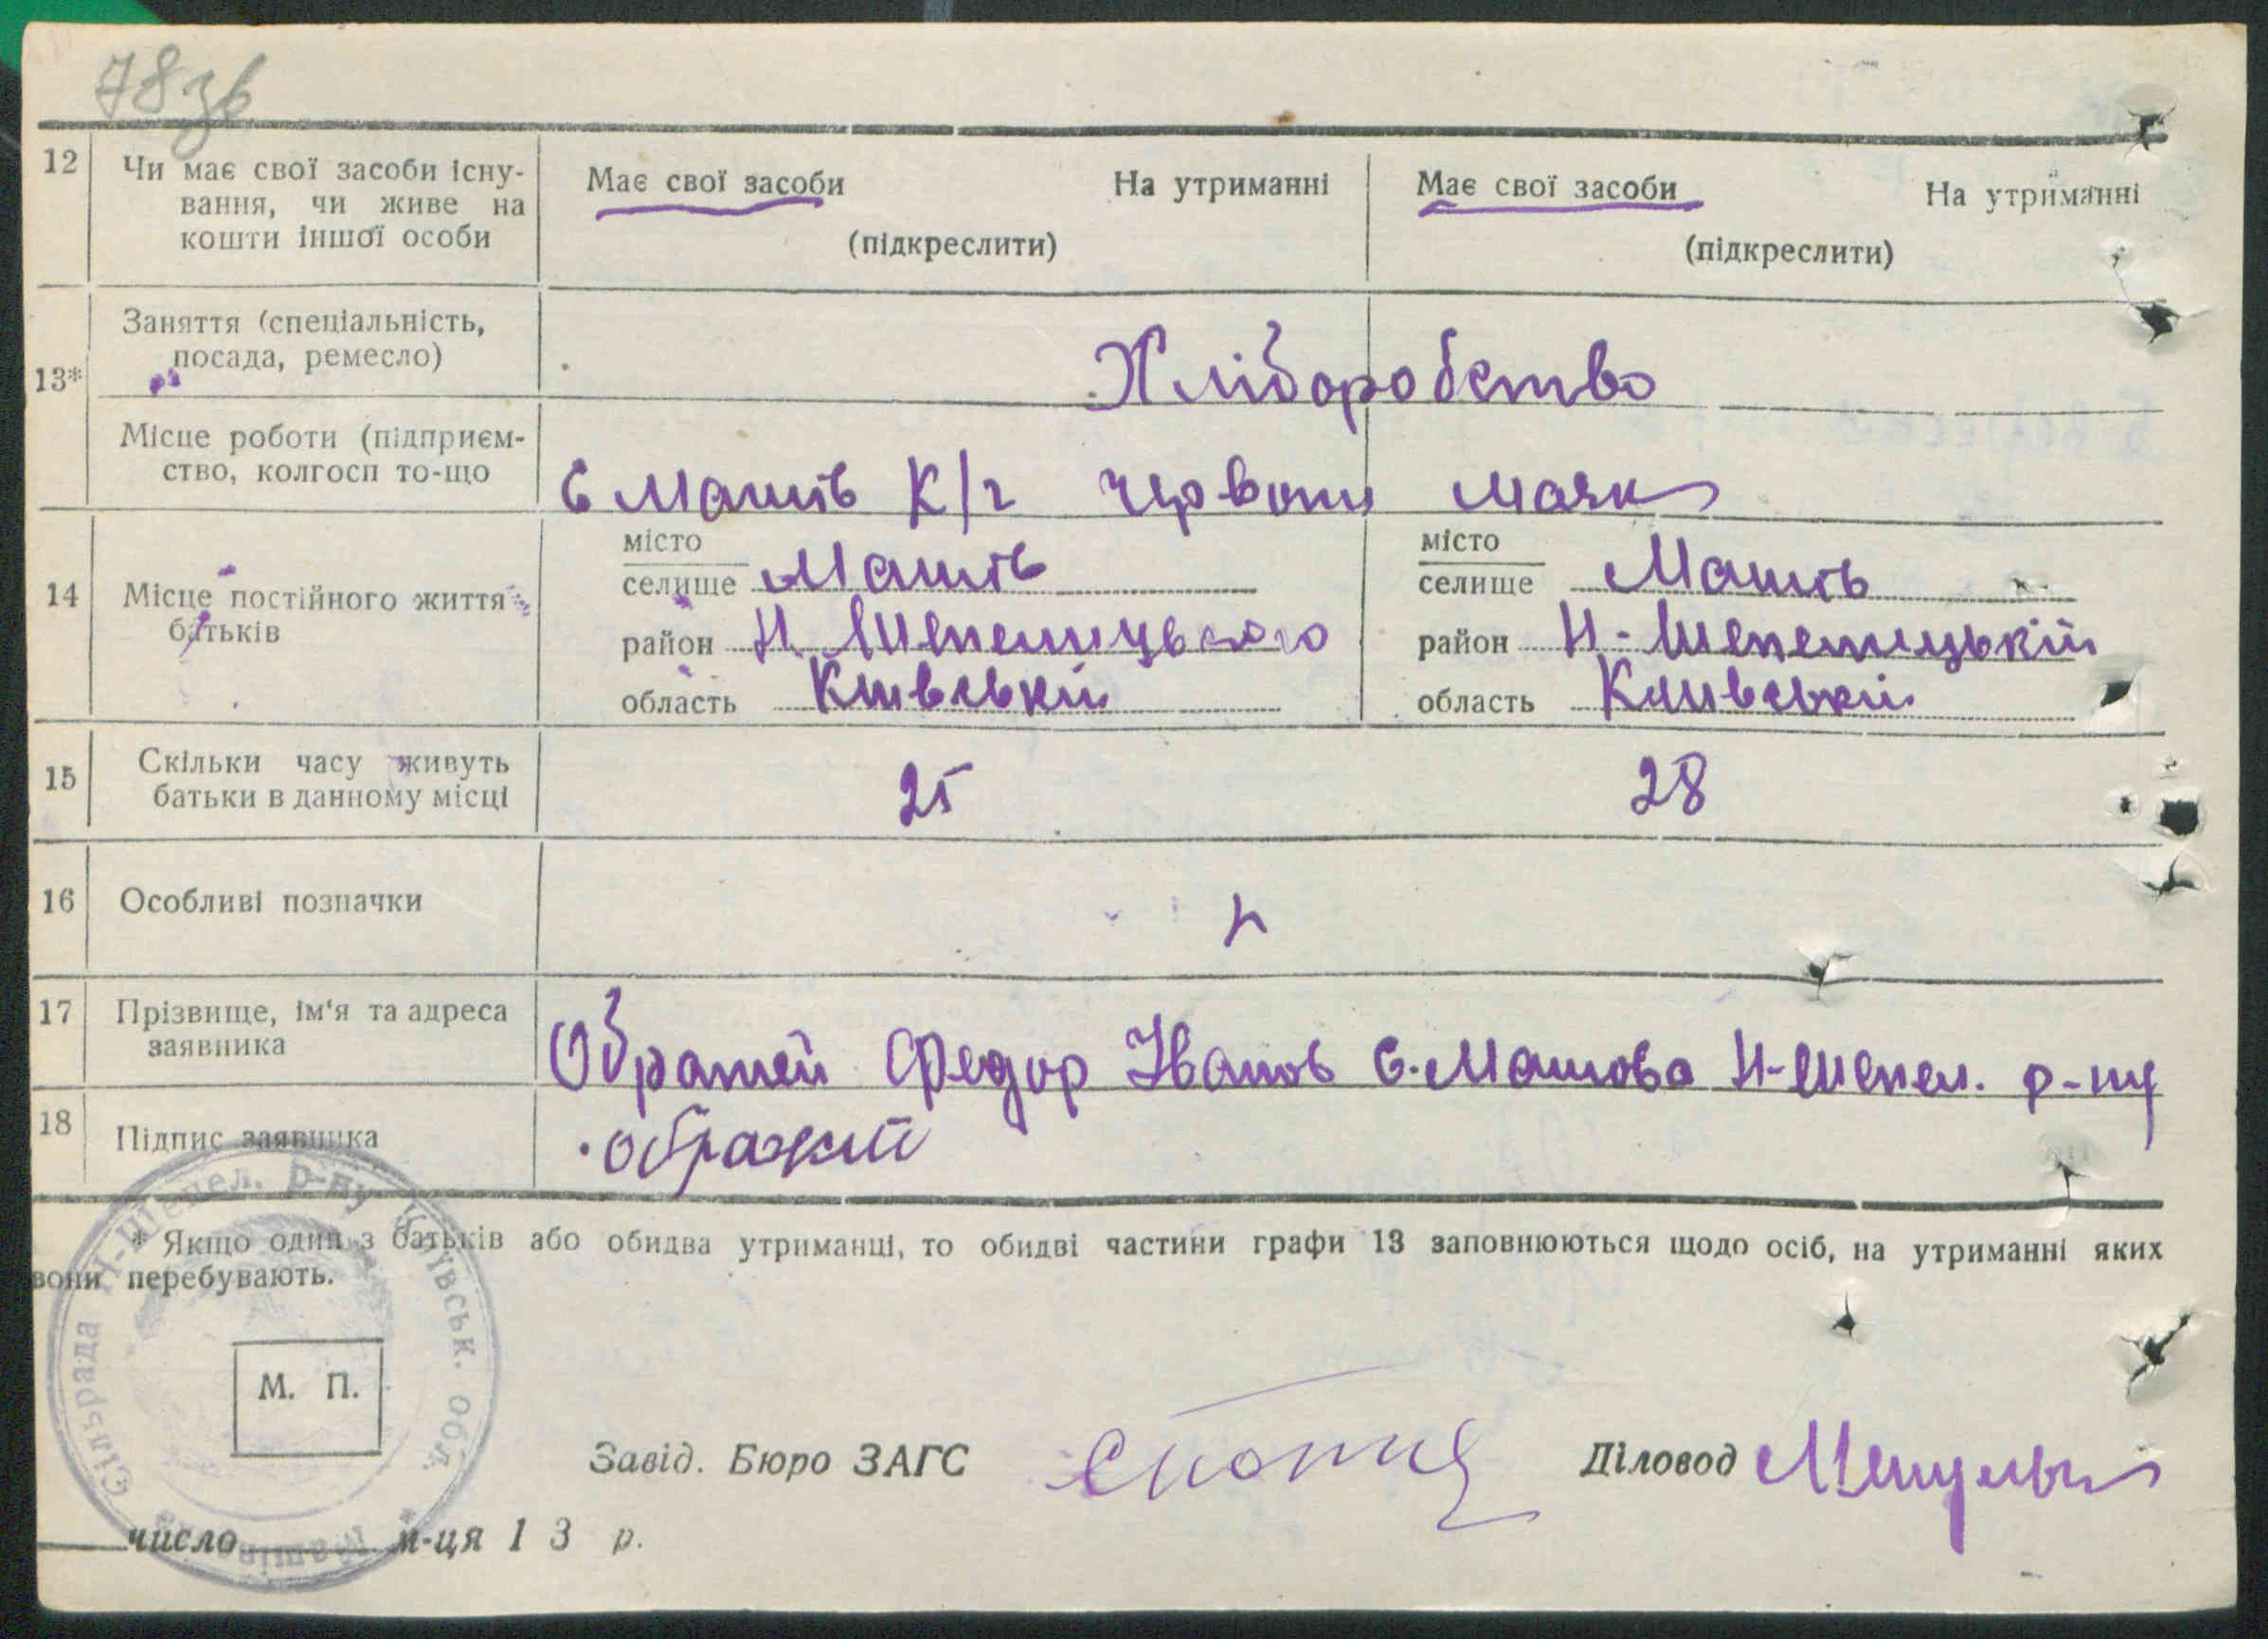 78 зв
12 Чи має свої засоби існу- Має свої засоби На утриманні Має свої засоби На утриманні
вання, чи живе на
кошти іншої особи (підкреслити) (підкреслити)
Заняття (спеціальність,
13* посада, ремесло) Хліборобство
Місце роботи (підприєм-
ство, колгосп то-що с Машів К/г червони маяк
місто місто
14 Місце постійного життя селище Машів селище Машів
батьків район Н. Шепелицького район Н-Шепелицький
область Київський область Київський
15 Скільки часу живуть 25 28
батьки в данному місці
16 Особливі позначки
17 Прізвище, ім'я та адреса
заявника Федор Іванов с. Машова Н-Шепел. р-ну
18 Підпис заявника
* Якщо один з батьків або обидва утриманці, то обидві частини графи 13 заповнюються щодо осіб, на утриманні яких
вони перебувають.
Сільрада Н-Шепел. р-ну Київськ. обл.
М. П.
Завід. Бюро ЗАГС Діловод
число м-ця 1 3 р.